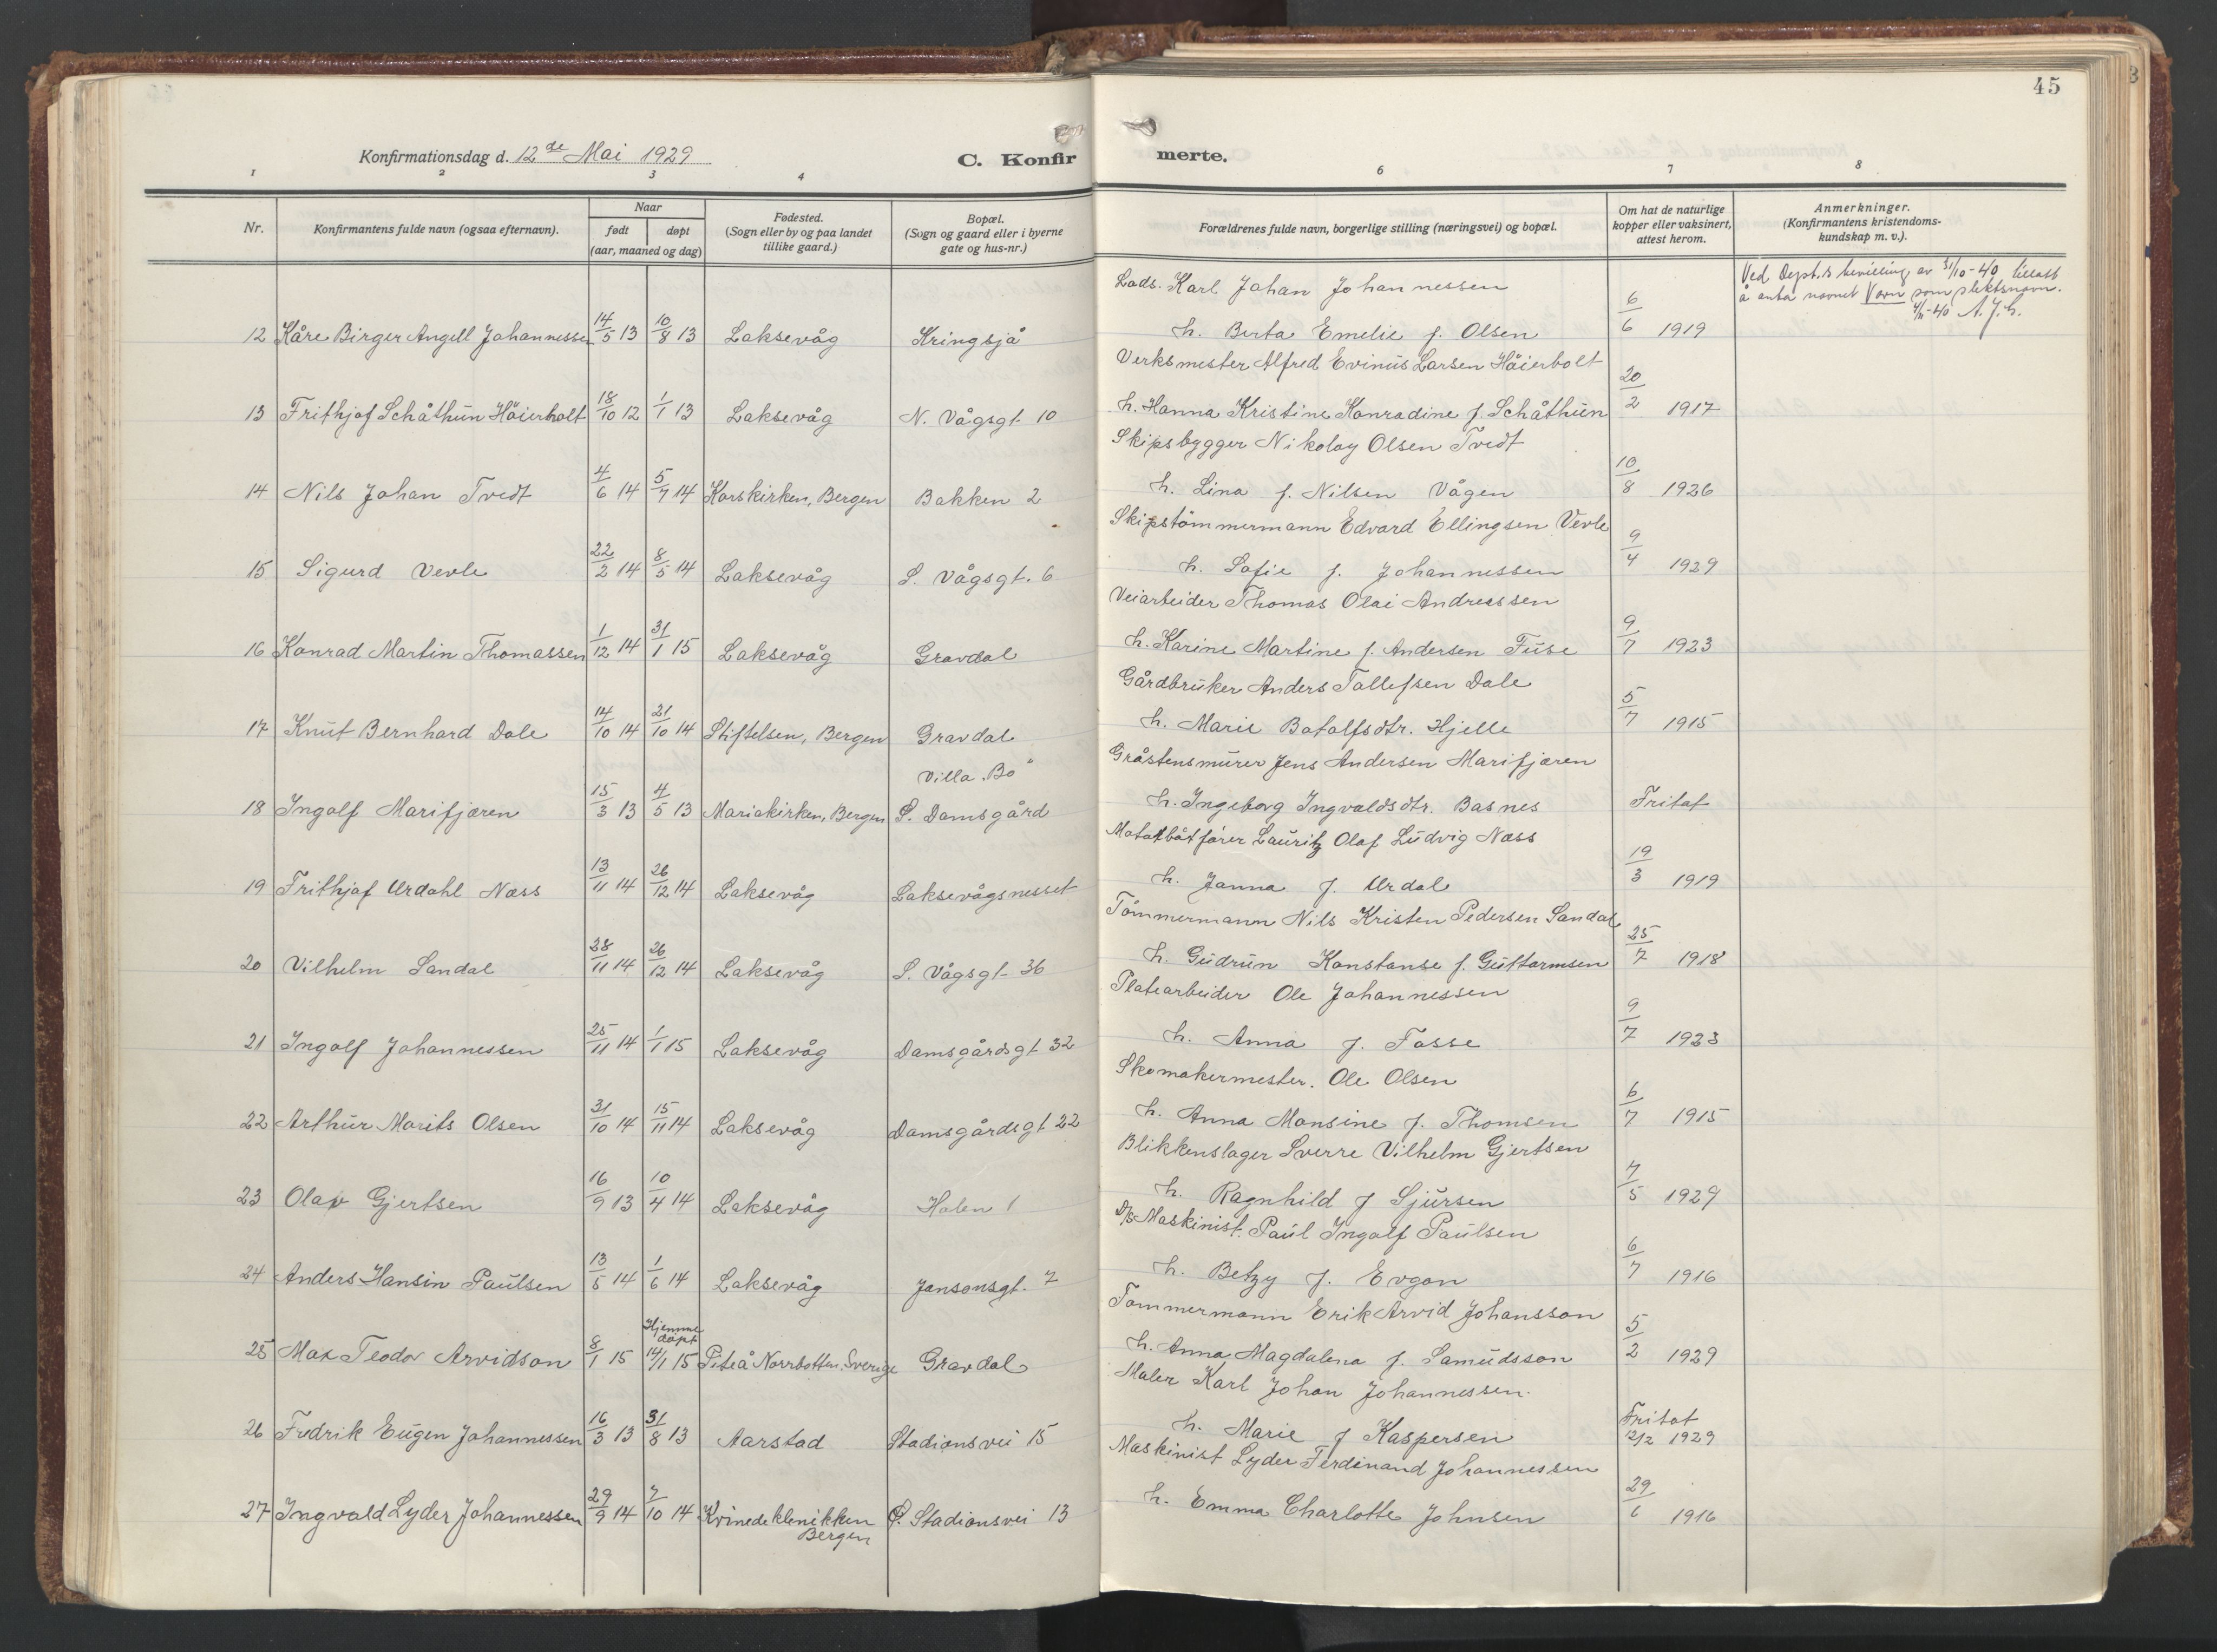 45
Konfirmationsdag d. 12de Mai 1929
C. Konfirmerte.
1 2 3 4 6 7 8
Nr.
Konfirmantens fulde navn (ogsaa efternavn).
Naar
født døpt
(aar, maaned og dag)
Fødested.
(Sogn eller by og paa landet
tillike gaard.)
Bopæl.
(Sogn og gaard eller i byerne
gate og hus-nr.)
Forældrenes fulde navn, borgerlige stilling (næringsvei) og bopæl.
Om hat de naturlige
kopper eller vaksinert,
attest herom.
Anmerkninger.
(Konfirmantens kristendoms-
kundskap m. v.).
Lods. Karl Johan Johannessen
Ved Dept.s bevilling av 31/10-40 tillatt
å anta navnet Vorn som slektsnavn.
4/11-40 A.J.h.
12 Kåre Birger Angell Johannessen 14/5 13 10/8 13 Laksevåg Kringsjå h. Berta Emelie f. Olsen 6/6 1919
Verksmester Alfred Evinus Larsen Håierholt
13 Frithjof Schåthun Håierholt 18/10 12 1/1 13 Laksevåg N. Vågsgt. 10 h. Hanna Kristine Konradine f. Schåthun 20/2 1917
Skipsbygger Nikolay Olsen Tvedt
14 Nils Johan Tvedt 4/6 14 5/7 14 Korskirken, Bergen Bakken 2 h. Lina f. Nilsen Vågen 10/8 1926
Skipstømmermann Edvard Ellingsen Vevle
15 Sigurd Vevle 22/2 14 8/5 14 Laksevåg S. Vågsgt. 6 h. Sofie f. Johannessen 9/4 1929
Veiarbeider Thomas Olai Andreassen
16 Konrad Martin Thomassen 1/12 14 31/1 15 Laksevåg Gravdal h. Karine Martine f. Andersen Fuse 9/7 1923
Gårdbruker Anders Tollefsen Dale
17 Knut Bernhard Dale 14/10 14 21/10 14 Stiftelsen, Bergen Gravdal h. Marie Botolfsdtr. Hjelle 5/7 1915
Gråstensmurer Jens Andersen Marifjæren
Villa „Bo"
18 Ingolf Marifjæren 15/3 13 4/5 13 Mariakirken, Bergen S. Damsgård h. Ingeborg Ingvaldsdtr. Basnes Fritat
Motorbåtfører Lauritz Olaf Ludvig Næss
19 Frithjof Urdahl Næss 13/11 14 26/12 14 Laksevåg Laksevågsnesset h. Janna f. Urdal 19/3 1919
Tømmermann Nils Kristen Pedersen Sandal
20 Vilhelm Sandal 28/11 14 26/12 14 Laksevåg S. Vågsgt. 36 h. Gudrun Konstanse f. Guttormsen 25/7 1918
Platearbeider Ole Johannessen
21 Ingolf Johannessen 25/11 14 1/1 15 Laksevåg Damsgårdsgt 32 h. Anna f. Fosse 9/7 1923
Skomakermester. Ole Olsen
22 Arthur Morits Olsen 31/10 14 15/11 14 Laksevåg Damsgårdsgt 22 h. Anna Monsine f. Thomsen 6/7 1915
Blikkenslager Sverre Vilhelm Gjertsen
23 Olav Gjertsen 16/9 13 10/4 14 Laksevåg Holen 1 h. Ragnhild f Sjursen 7/5 1929
D/s Maskinist. Paul Ingolf Paulsen
24 Anders Hansin Paulsen 13/5 14 1/6 14 Laksevåg Jansonsgt. 7 h. Betzy f. Evgon 6/7 1916
Tømmermann Erik Arvid Johansson
Hjemme
døpt
25 Max Teodor Arvidson 8/1 15 14/1 15 Piteå Norrbotten. Sverige Gravdal h. Anna Magdalena f. Samudsson 5/2 1929
Maler Karl Johan Johannessen.
26 Fredrik Eugen Johannessen 16/3 13 31/8 13 Aarstad Stadionsvei 15 h. Marie f Kaspersen Fritat
12/2 1929
Maskinist Lyder Ferdinand Johannessen
27 Ingvald Lyder Johannessen 29/9 14 7/10 14 Kvindeklenikken Bergen Stadionsvei 13 h. Emma Charlotte Johnsen 29/6 1916